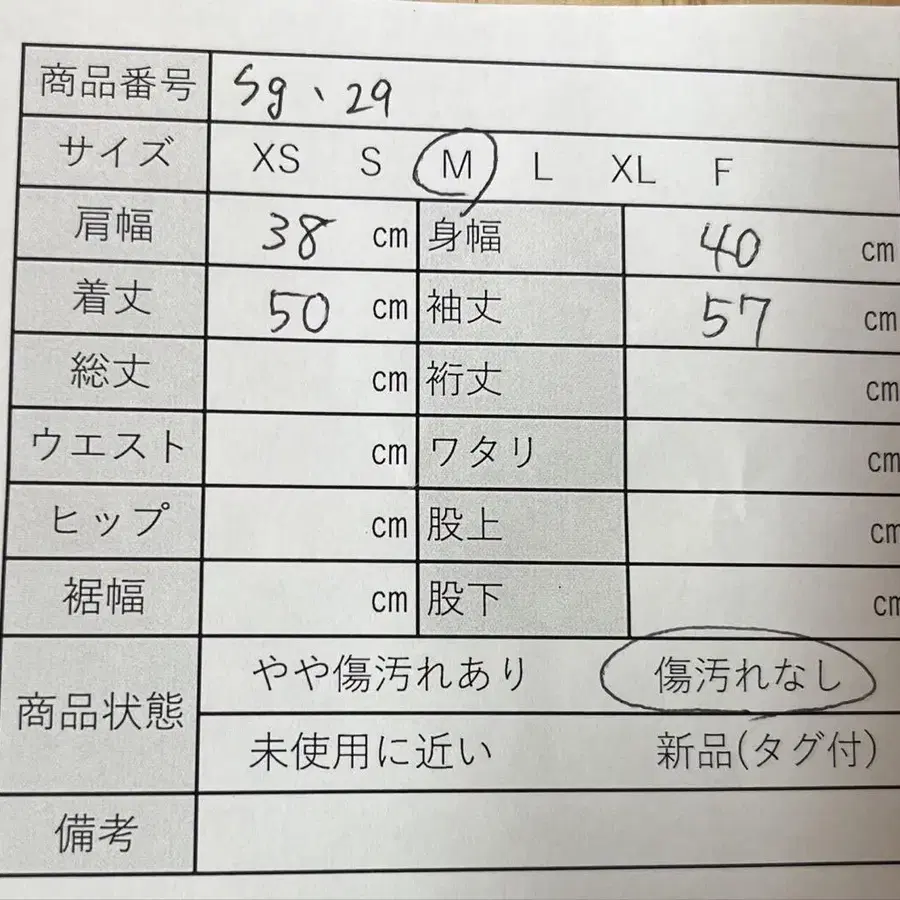 商品番号 Sg、29
サイズ XS S M L XL F
肩幅 38 cm 身幅 40 cm
着丈 50 cm 袖丈 57 cm
総丈 cm 裄丈 cm
ウエスト cm ワタリ cm
ヒップ cm 股上 cm
裾幅 cm 股下 cm
商品状態 やや傷汚れあり 傷汚れなし
未使用に近い 新品(タグ付)
備考